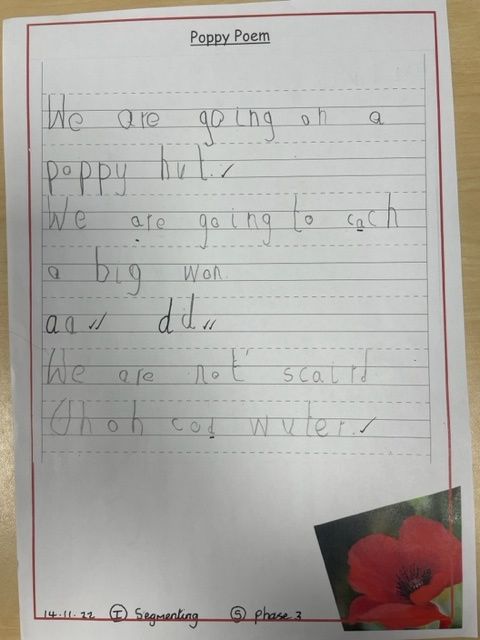 Poppy Poem
We are going on a
poppy hut.
We are going to cach
a big won.
aa dd
We are not scaird
Uhoh cod wuter.
14.11.22 I Segmenting S phase 3